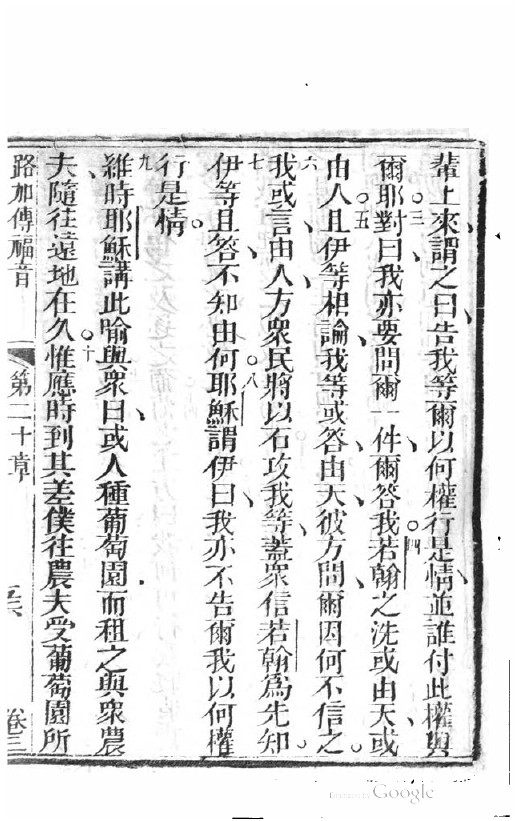 輩上來謂之曰告我等爾以何權行是情並誰付此權與
爾耶對曰我亦要問爾一件爾答我若翰之洗或由天或
由人且伊等相論我等或答由天彼方問爾因何不信之
我或言由人方衆民將以石攻我等蓋衆信若翰爲先知
伊等且答不知由何耶穌謂伊曰我亦不告爾我以何權
行是情
維時耶穌講此喻與衆曰或人種葡萄園而租之與衆農
夫隨往遠地在久惟應時到其差僕往農夫受葡萄園所
路加傳福音 第二十章 卷三
三
四
五
六
七
八
九
十
Digitized by Google